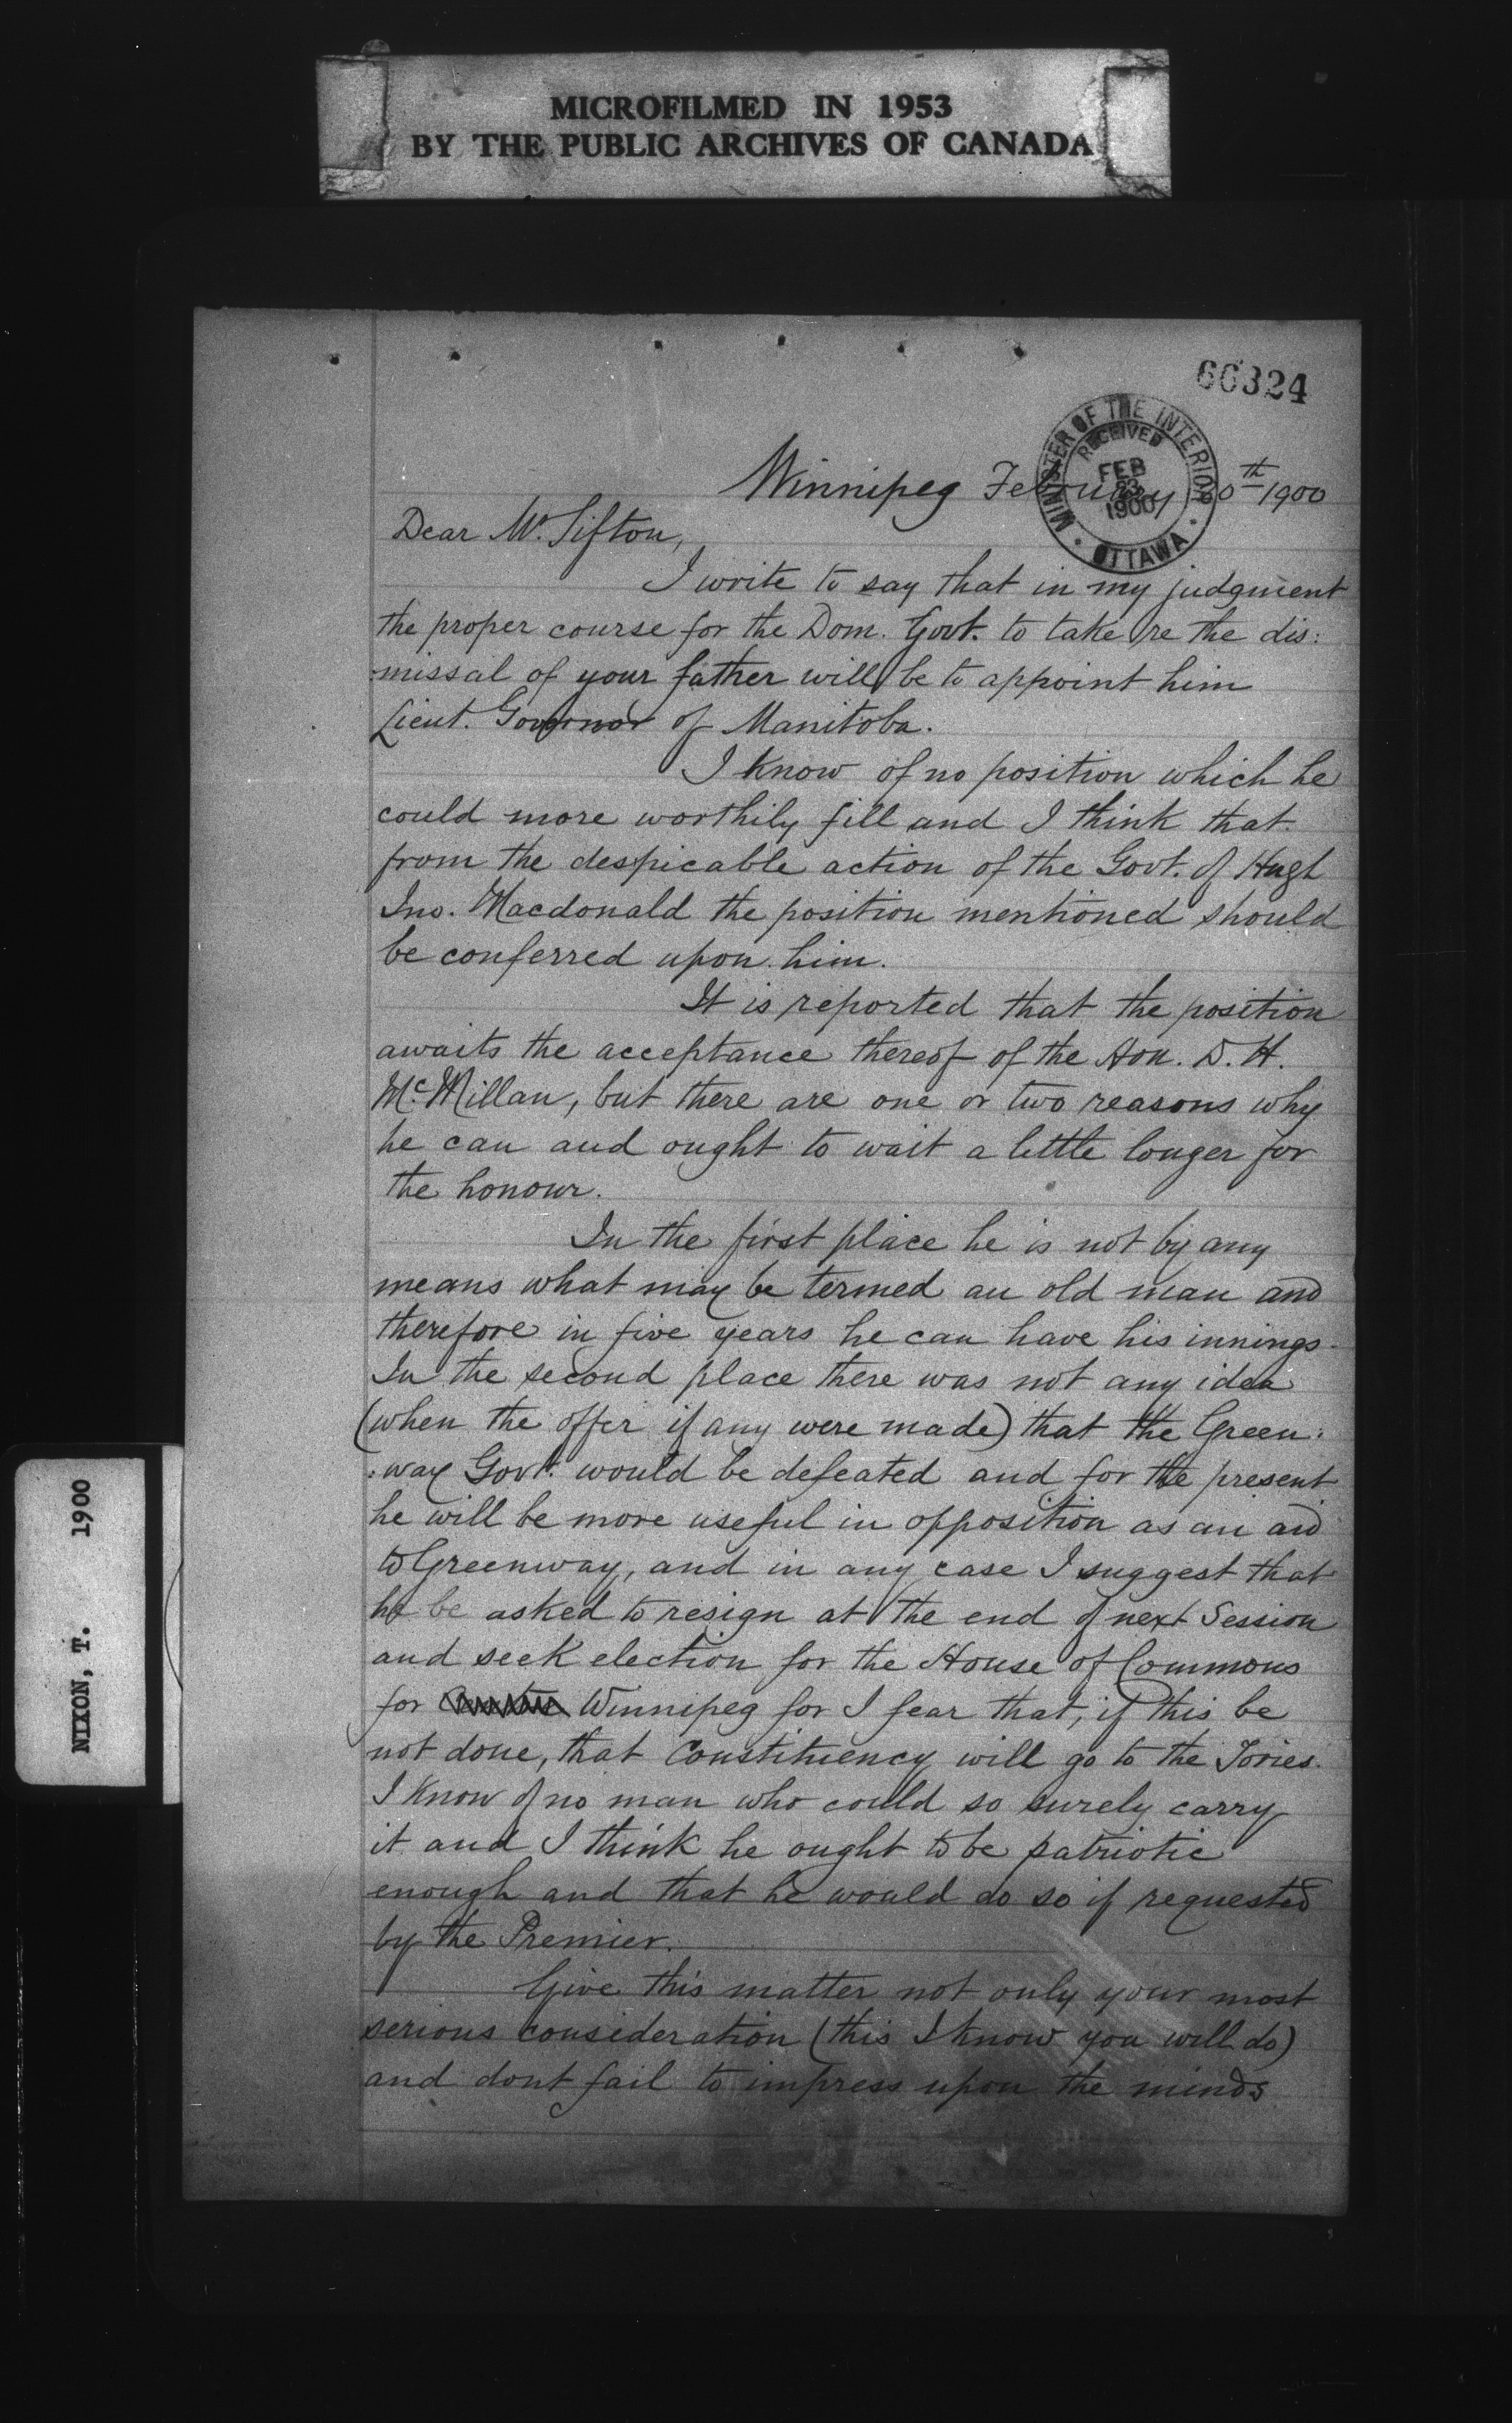 MICROFILMED IN 1953
BY THE PUBLIC ARCHIVES OF CANADA
66324
MINISTER OF THE INTERIOR
RECEIVED
FEB
23
1900
OTTAWA
Winnipeg February 0th 1900
Dear Mr. Sifton,
I write to say that in my judgment
the proper course for the Dom. Govt. to take re the dis:
missal of your father will be to appoint him
Lieut. Governor of Manitoba.
I know of no position which he
could more worthily fill and I think that
from the despicable action of the Govt. of Hugh
Jno. Macdonald the position mentioned should
be conferred upon him.
It is reported that the position
awaits the acceptance thereof of the Hon. D. H.
McMillan, but there are one or two reasons why
he can and ought to wait a little longer for
the honour.
In the first place he is not by any
means what may be termed an old man and
therefore in five years he can have his innings.
In the second place there was not any idea
(when the offer if any were made) that the Green:
:way Govt. would be defeated and for the present
he will be more useful in opposition as an aid
to Greenway, and in any case I suggest that
he be asked to resign at the end of next Session
and seek election for the House of Commons
for Winnipeg for I fear that, if this be
not done, that Constituency will go to the Tories.
I know of no man who could so surely carry
it and I think he ought to be patriotic
enough and that he would do so if requested
by the Premier.
Give this matter not only your most
serious consideration (this I know you will do)
and dont fail to impress upon the minds
NIXON, T. 1900